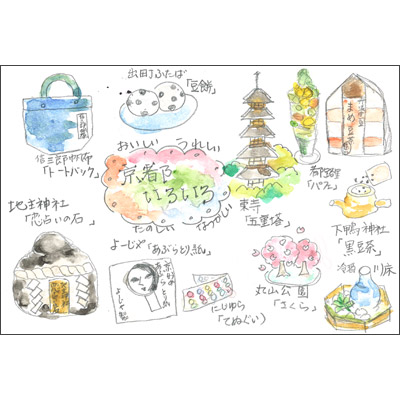 出町ふたば
「豆餅」
信三郎帆布
「トートバック」
おいしい うれしい
京都の
いろいろ
たのしい なつかしい
東寺
「五重塔」
都路里
「パフェ」
下鴨神社
「黒豆茶」
地主神社
「恋占いの石」
よーじや「あぶらとり紙」
よーじや製
にじゆら
「てぬぐい」
丸山公園
「さくら」
冷酒 川床